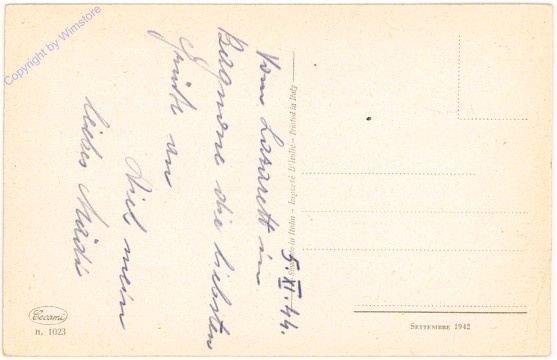 Copyright by Wimstore
5. XI. 44.
Vom Lazarett in
Bergmone die liebsten
Grüße an
Dich mein
liebes Mädi
Stampato in Italia - Importé D'Italie - Printed in Italy
Cecami
n. 1023
SETTEMBRE 1942